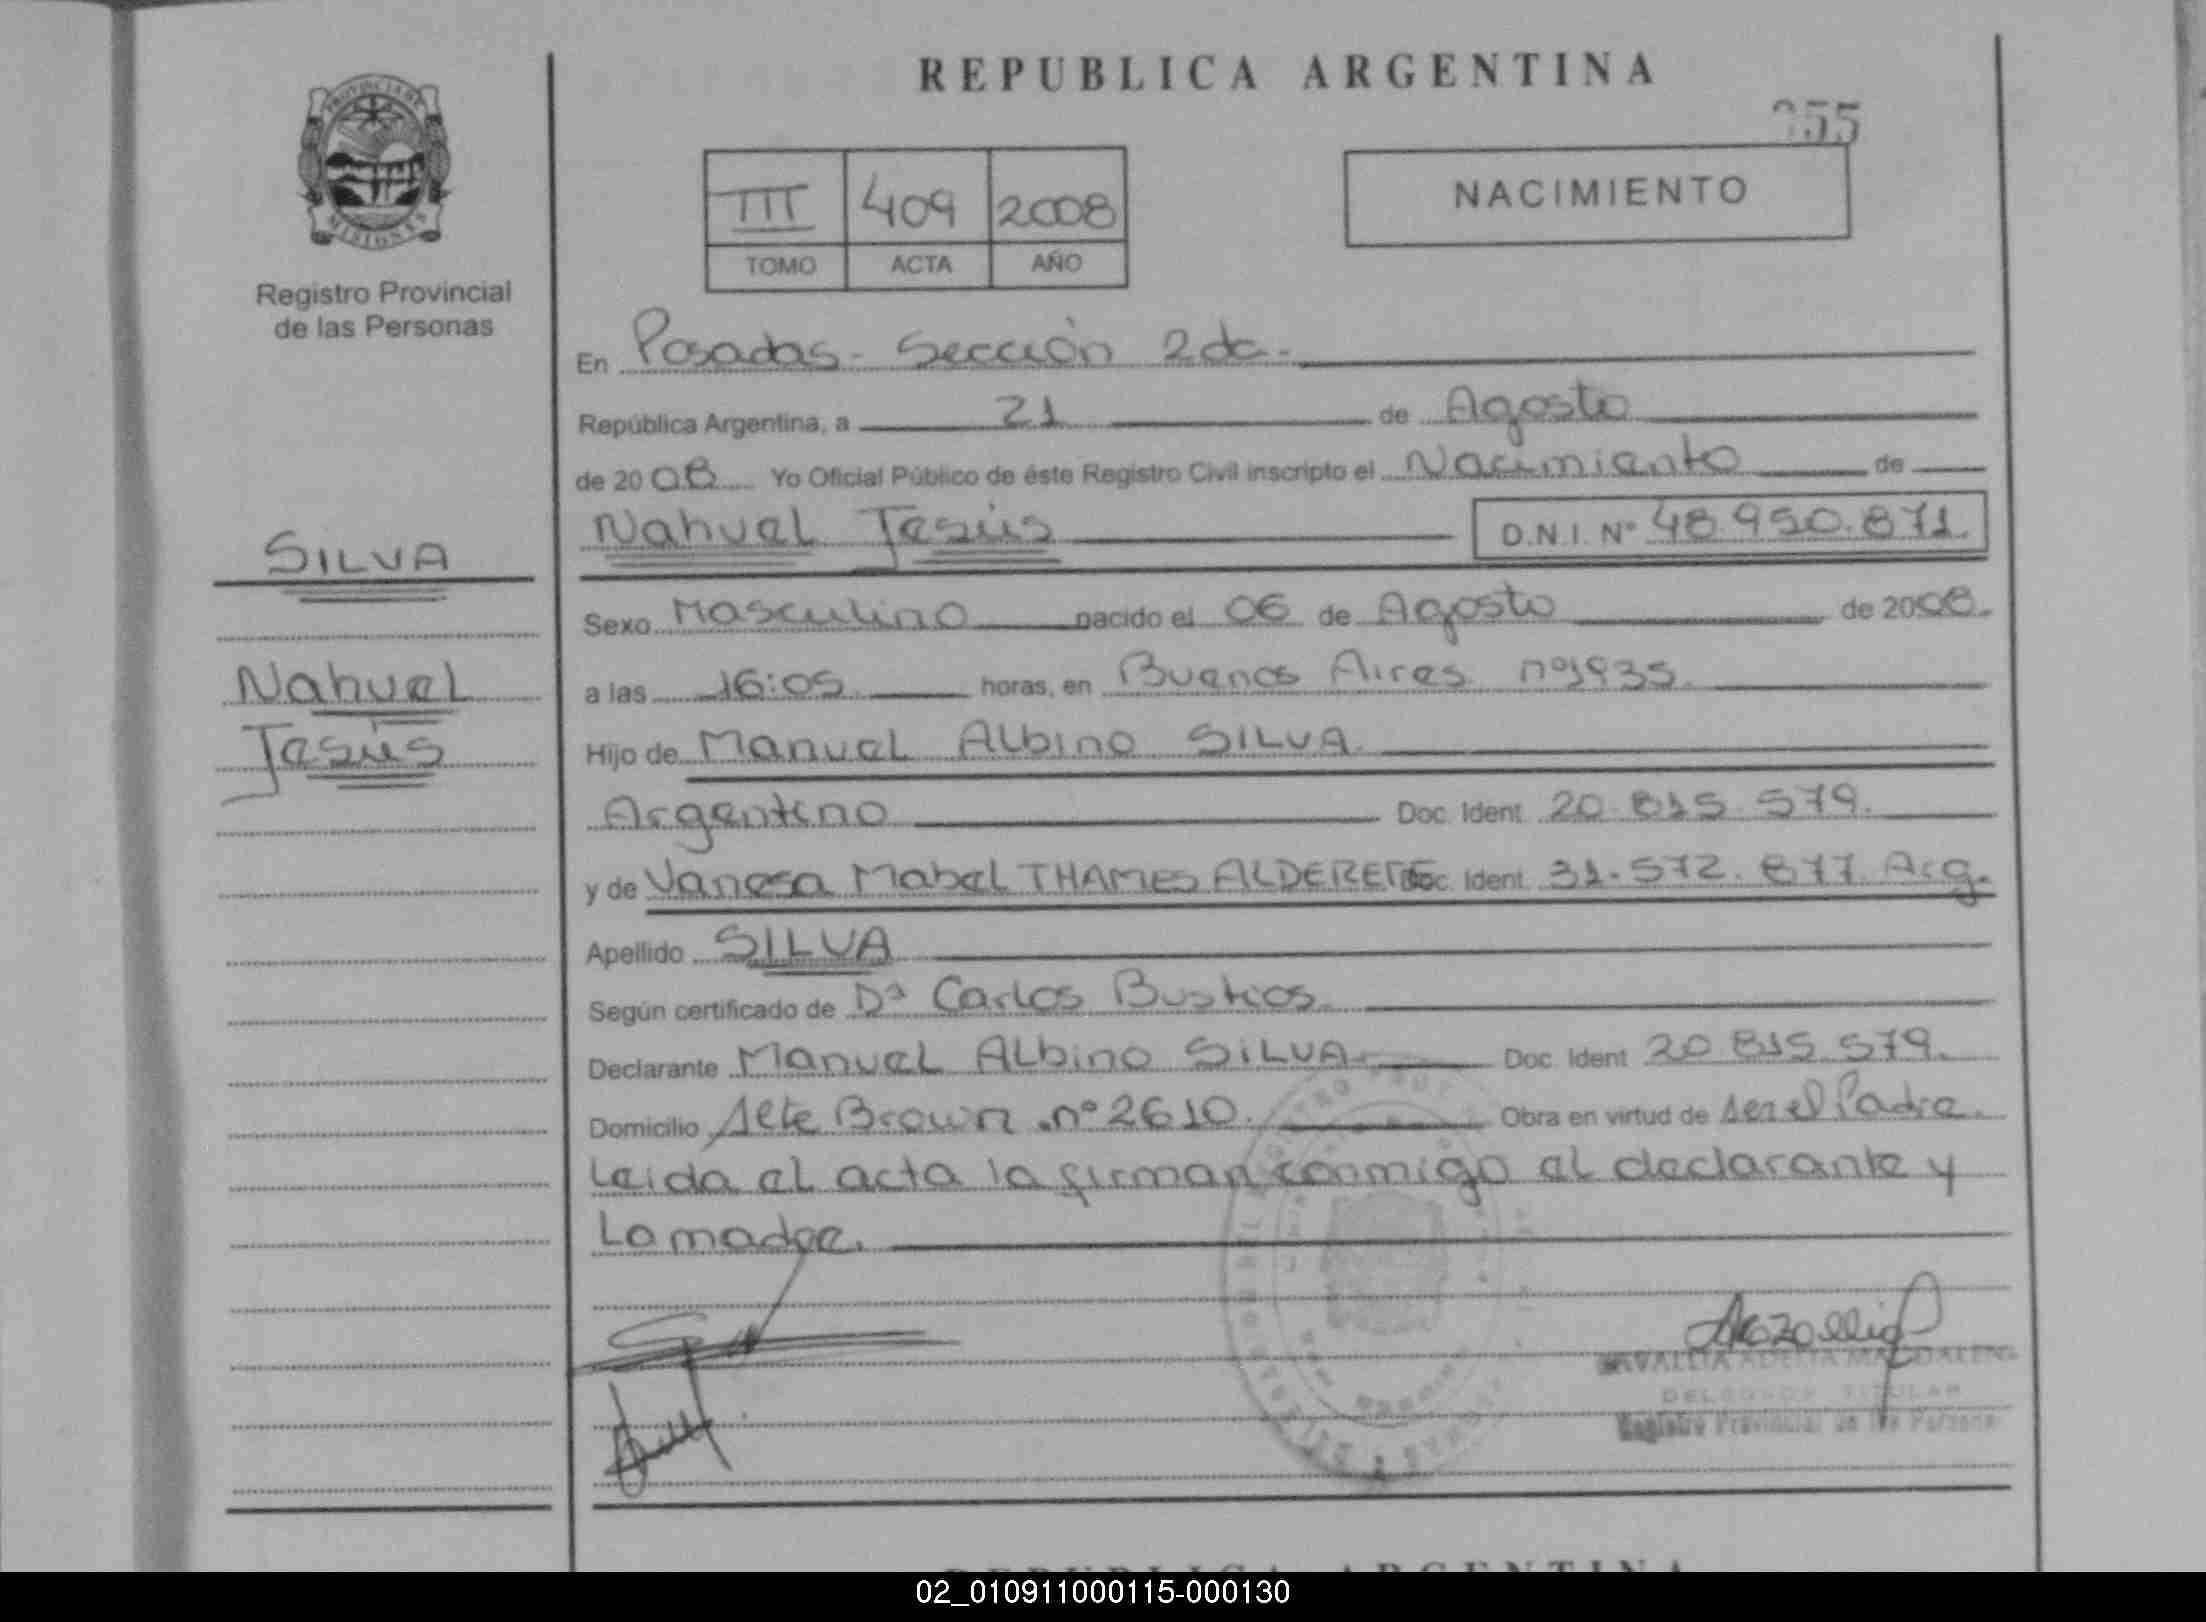 REPUBLICA ARGENTINA
355
PROVINCIA DE MISIONES
Registro Provincial
de las Personas
III 409 2008
TOMO ACTA AÑO
NACIMIENTO
En Posadas - Sección 2da.
República Argentina, a 21 de Agosto
de 2008 Yo Oficial Público de éste Registro Civil inscripto el Nacimiento de
Nahuel Jesús D.N.I. Nº 48.950.871.
SILVA
Nahuel
Jesús
Sexo Masculino nacido el 06 de Agosto de 2008.
a las 16:05 horas, en Buenos Aires nº1935.
Hijo de Manuel Albino SILVA.
Argentino Doc. Ident. 20.815.579.
y de Vanesa Mabel THAMES ALDERETE Doc. Ident. 31.572.877. Arg.
Apellido SILVA
Según certificado de Dª Carlos Bustios.
Declarante Manuel Albino SILVA Doc. Ident 20.815.579.
Domicilio Alte Brown nº2610. Obra en virtud de ser el Padre.
Leida el acta la firman conmigo el declarante y
La madre.
ADELIA MAGDALENA
DELEGADA TITULAR
Registro Provincial de las Personas
REPUBLICA ARGENTINA
02_010911000115-000130